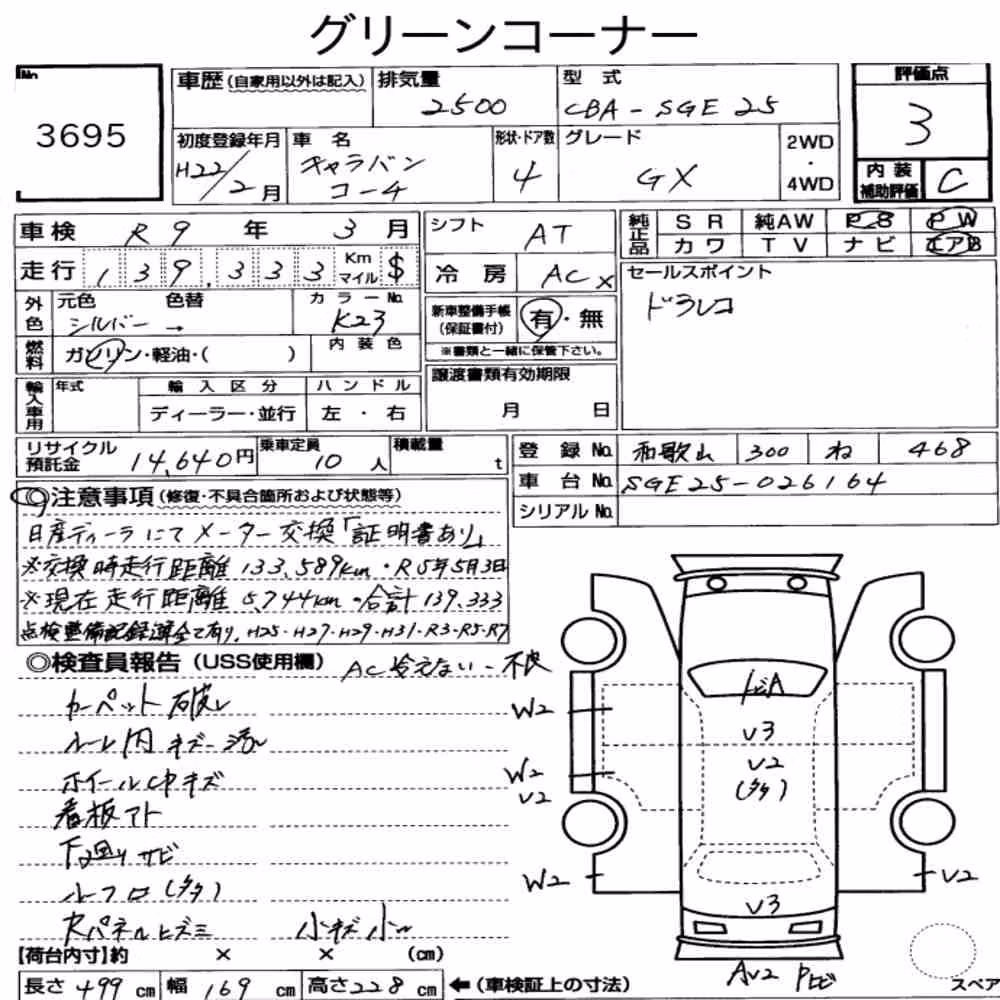 グリーンコーナー
No. 3695
車歴 (自家用以外は記入) 排気量 2500 型式 CBA-SGE25 評価点 3
初度登録年月 H22/2月 車名 キャラバンコーチ 形状・ドア数 4 グレード GX 2WD・4WD 内装補助評価 C
車検 R9年 3月 シフト AT 純正品 SR 純AW PS PW
カワ TV ナビ エアB
走行 139,333 Km マイル $ 冷房 AC x セールスポイント
ドラレコ
外色 元色 シルバー → 色替 カラーNo. K23 新車整備手帳 (保証書付) 有・無
※書類と一緒に保管下さい。
燃料 ガソリン・軽油・( ) 内装色
譲渡書類有効期限 月 日
輸入車用 年式 輸入区分 ディーラー・並行 ハンドル 左・右
リサイクル預託金 14,640円 乗車定員 10人 積載量 t
登録No. 和歌山 300 ね 468
車台No. SGE25-026164
シリアルNo.
◎注意事項 (修復・不具合箇所および状態等)
日産ディーラにてメーター交換「証明書あり」
※交換時走行距離 133,589km・R5年5月3日
※現在走行距離 5,744km・合計139,333
点検整備記録簿全て有り, H25・H27・H29・H31・R3・R5・R7
◎検査員報告 (USS使用欄) AC冷えない・不良
カーペット破レ
ルーム内キズ・汚レ
ホイールCPキズ
看板アト
下回りサビ
ルーフロ(タタ)
Rパネルヒズミ 小キズ小凹
トビA
W2
V3
V2
(タタ)
W2
V2
W2
V2
V3
AV2 Pヒビ
スペア
【荷台内寸】約 × × (cm)
長さ 499cm 幅 169cm 高さ 228cm ←(車検証上の寸法)